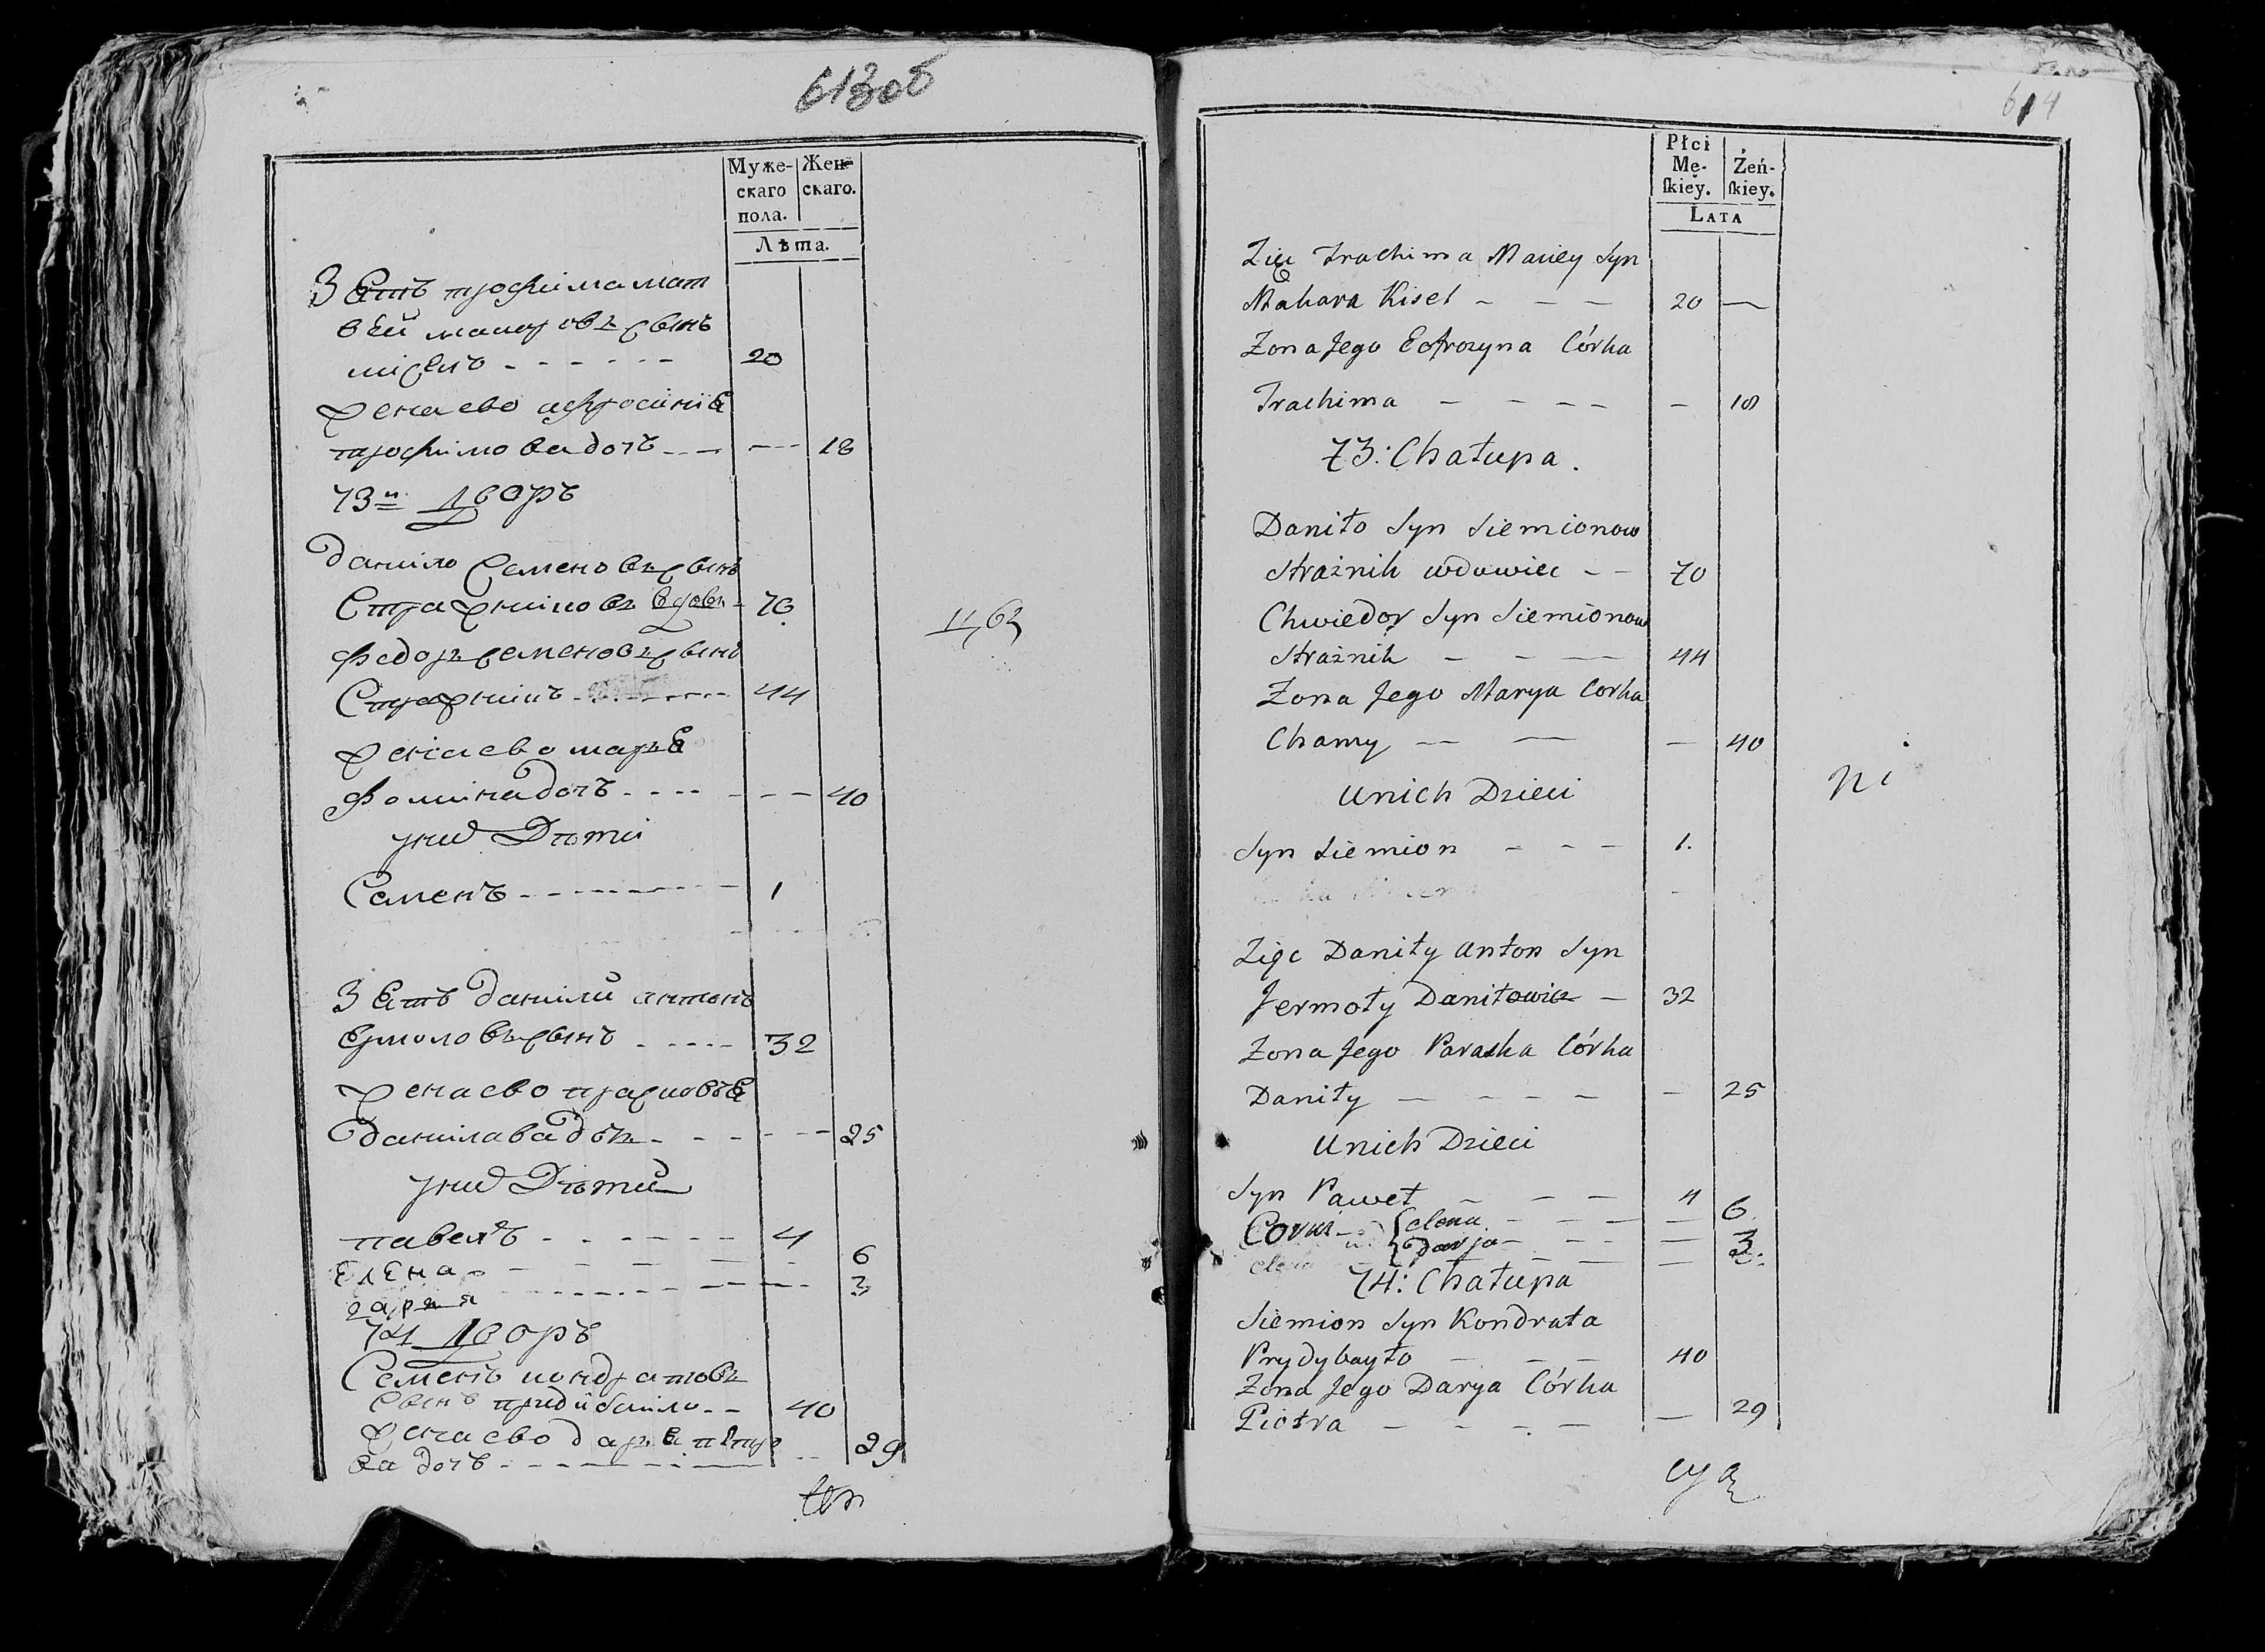 613 об
Муже-
скаго
пола.
Жен-
скаго.
Лѣта.
Зеть трофима мат
вей макаровъ сынъ
киселъ - - - - - - 20
жена ево афросиниа
трофимова дочъ - - - --- 18
73й Дворъ
данило Семеновъ сынъ
Стражниковъ вдовъ - 70
федоръ семеновъ сынъ
Стражникъ - - - - - 44
жена ево маръя
фомина дочъ - - - - --- 40
у них Дѣти
Семенъ - - - - - - - 1
Зеть данили антонъ
Ермоловъ сынъ - - - - - 32
жена ево прасковъя
данилава дочь - - - - - 25
у них Дѣти
павелъ - - - - - - 4
Елена - - - - - - 6
даря - - - - - - 3
74 Дворъ
Семенъ кондратовъ
сынъ придибайло - - 40
жена ево даръя петро
ва дочъ - - - - - - 29
614
Płci
Mę-
ſkiey.
Żeń-
ſkiey.
Lata
Zięc Trachima Maciey Syn
Makara Kisel - - - 20 -
Zona Jego Eofrozyna Córka
Trachima - - - - - - 18
73: Chałupa.
Daniło Syn Siemionow
Strażnik wdowiec - - 70
Chwiedor Syn Siemionow
Strażnik - - - 44
Zona Jego Marya Corka
Chamy - - - 40
U nich Dzieci
Syn Siemion - - - 1.
Zięc Daniły Anton Syn
Jermoły Daniłowicz - 32
Zona Jego Paraska Córka
Daniły - - - - - - 25
U nich Dzieci
Syn Paweł - - - 4
elena - - - - 6
darja - - - - 3.
74: Chałupa
Siemion Syn Kondrata
Prydybayło - - - 40
Zona Jego Darya Córka
Piotra - - - - - 29